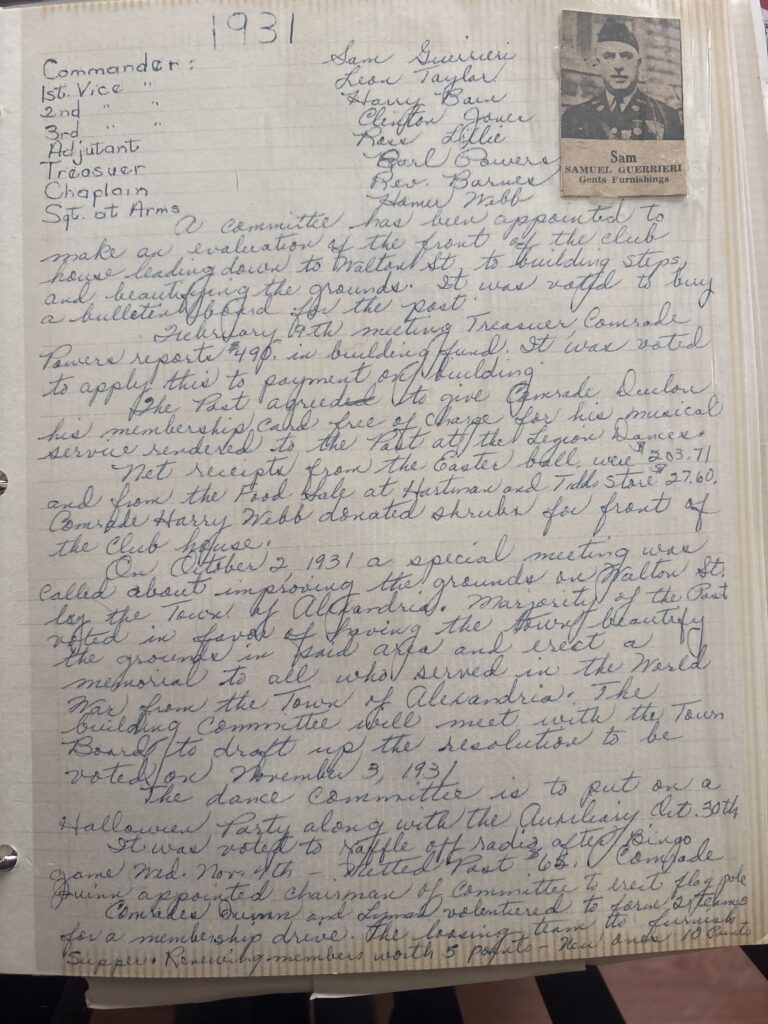 1931
Commander: Sam Guerrieri
1st. Vice " Leon Taylor
2nd " " Harry Bain
3rd " " Clinton Jones
Adjutant Ross Lillie
Treasuer Earl Powers
Chaplain Rev. Barnes
Sgt. at Arms Homer Webb
Sam
SAMUEL GUERRIERI
Gents Furnishings
A committee has been appointed to
make an evaluation of the front of the club
house leading down to Walton St. to building steps,
and beautifying the grounds. It was voted to buy
a bulletin board for the post.
February 19th meeting Treasuer Comrade
Powers reports $490. in building fund. It was voted
to apply this to payment on building
The Post agreed to give Comrade
his membership card free of charge for his musical
service rendered to the Post at the Legion Dances.
Net receipts from the Easter ball were $203.71
and from the Food Sale at Hartman and Tidds Store $27.60.
Comrade Harry Webb donated shrubs for front of
the Club house.
On October 2, 1931 a special meeting was
called about improving the grounds on Walton St.
by the Town of Alexandria. Marjority of the Post
voted in favor of having the town beautify
the grounds in said area and erect a
memorial to all who served in the World
War from the Town of Alexandria. The
building Committee will meet with the Town
Board to draft up the resolution to be
voted on November 3, 1931
The dance Committee is to put on a
Halloween Party along with the Auxiliary Oct. 30th
It was voted to raffle off radio after Bingo
game Wed. Nov. 4th - Netted Post Comrade
Quinn appointed chairman of committee to erect flag pole
Comrades Quinn and Lyman volentiered to form 2 teams
for a membership drive. The loosing team to furnish
Supper. Renewing members worth 5 points - New ones 10 Points